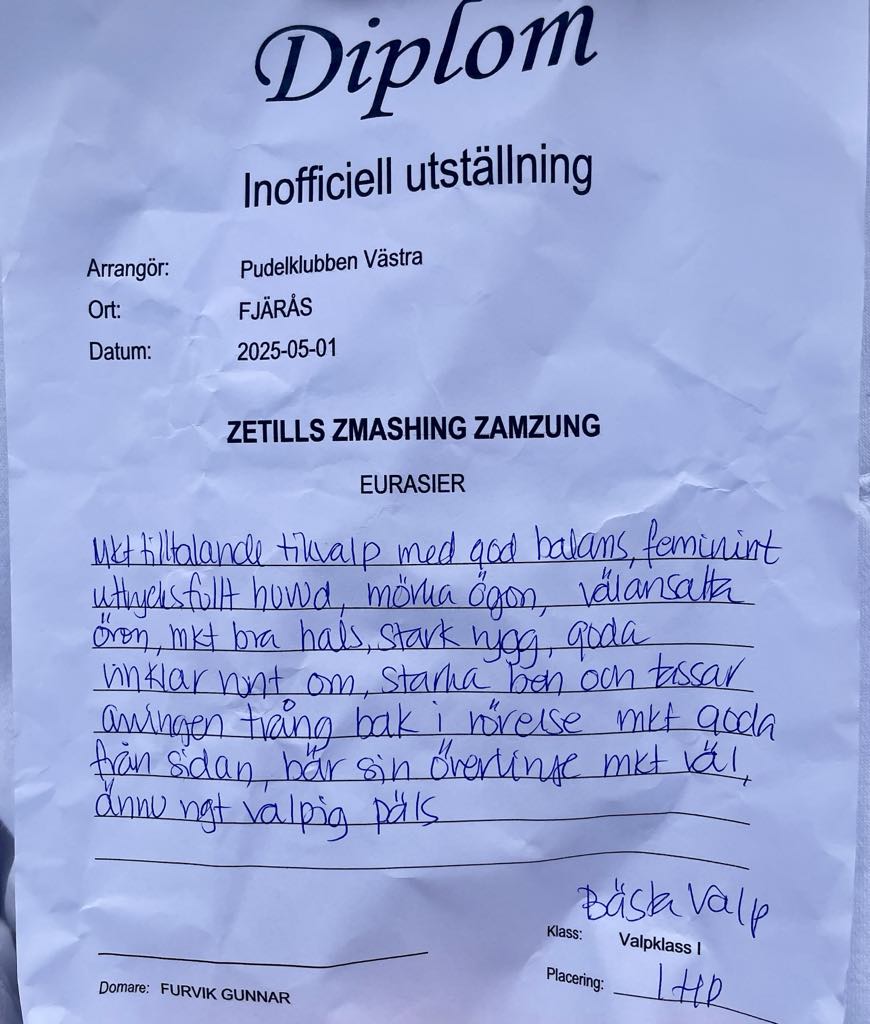 Diplom
Inofficiell utställning
Arrangör: Pudelklubben Västra
Ort: FJÄRÅS
Datum: 2025-05-01
ZETILLS ZMASHING ZAMZUNG
EURASIER
Mkt tilltalande tikvalp med god balans, feminint
uttrycksfullt huvud, mörka ögon, välansatta
öron, mkt bra hals, stark rygg, goda
vinklar runt om, starka ben och tassar
aningen trång bak i rörelse mkt goda
från sidan, bär sin överlinje mkt väl,
ännu ngt valpig päls
Bästa Valp
Klass: Valpklass I
Placering: 1 HP
Domare: FURVIK GUNNAR